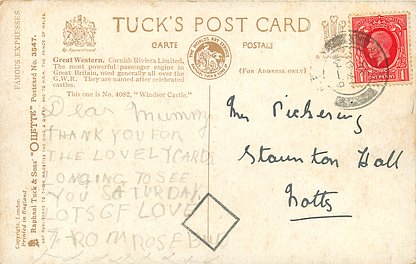 TUCK'S POST CARD
CARTE POSTALE
(FOR ADDRESS ONLY)
Great Western. Cornish Riviera Limited.
The most powerful passenger engines in
Great Britain, used generally all over the
G.W.R. They are named after celebrated
castles.
This one is No. 4082, "Windsor Castle."
FAMOUS EXPRESSES
Raphael Tuck & Sons' "OILETTE" Postcard No. 3547.
Copyright London.
Printed in England
Dear Mummy
THANK YOU FOR
THE LOVELY CARD
LONGING TO SEE
YOU SATURDAY
LOTS OF LOVE
FROM ROSEBUD
Pickering
Staunton Hall
Notts
1 1